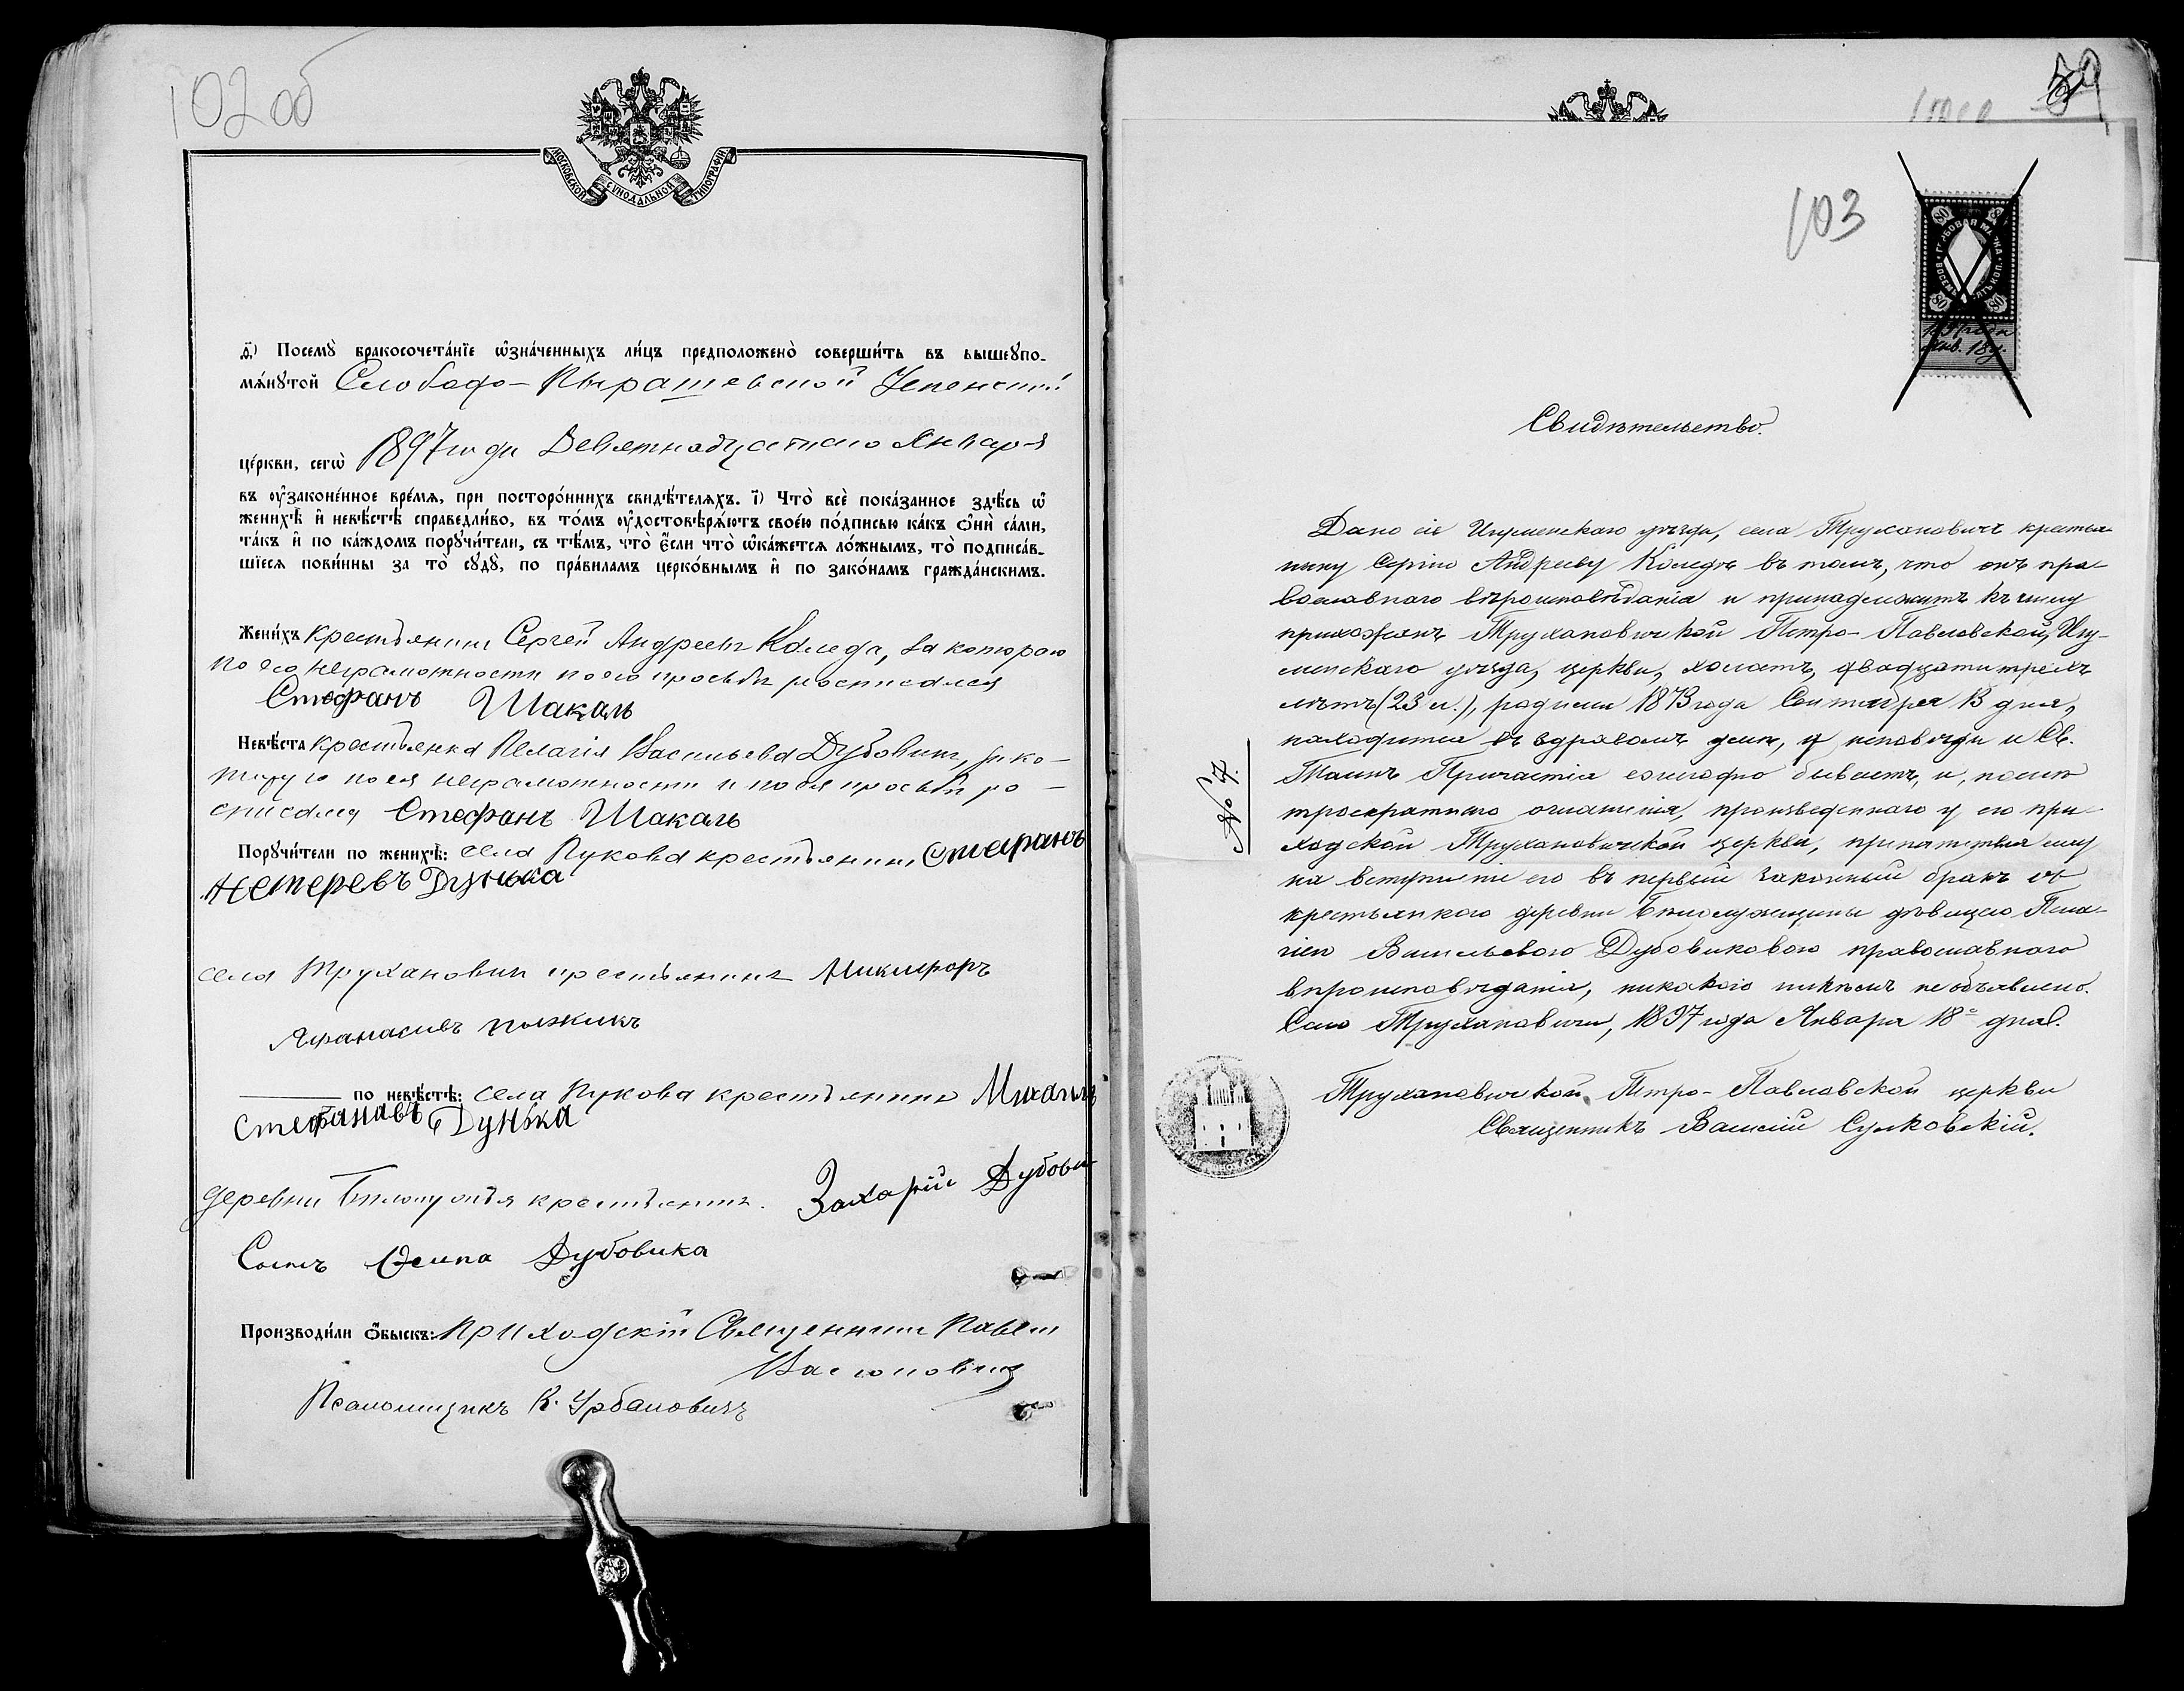 102 об
МОСКОВСКОЙ СѴНОДАЛЬНОЙ ТИПОГРАФІИ
д҃) Посемꙋ̀ бракосочета́нїе ѡ҆зна́ченныхъ ли́цъ предположено̀ соверши́ть въ вышеꙋпо-
мѧ́нꙋтой Слободо-Пырашевской Успенской
це́ркви, сегѡ̀ 1897 года Девятнадцатаго Января
въ ᲂу҆законе́нное вре́мѧ, при посторо́ннихъ свидѣ́телѧхъ. і҃) Что̀ всѐ пока́занное здѣ́сь ѡ҆
женихѣ̀ и҆ невѣ́стѣ справедли́во, въ то́мъ ᲂу҆достовѣрѧ́ютъ свое́ю по́дписью ка́къ ѻ҆нѝ са́ми,
та́къ и҆ по ка́ждомъ порꙋчи́тели, съ тѣ́мъ, что̀ є҆́сли что̀ ѡ҆ка́жетсѧ ло́жнымъ, то̀ подписа́в-
шїесѧ пови́нны за то̀ сꙋдꙋ̀, по пра́виламъ церко́внымъ и҆ по зако́намъ гражда́нскимъ.
Жени́хъ крестьянинъ Сергей Андреевъ Коледа, за котораго
по его неграмотности по его просьбѣ росписался
Стефанъ Шакаль
Невѣ́ста крестьянка Пелагія Васильева Дубовикъ, за ко-
торую по ея неграмотности и по ея просьбѣ ро-
списался Стефанъ Шакаль
Порꙋчи́тели по женихѣ̀: села Пукова крестьянинъ Стефанъ
Нестеревъ Дунька
села Трухановичи крестьянинъ Никифоръ
Афанасивъ
по невѣ́стѣ: села Пукова крестьянинъ Михаилъ
Стефанавъ Дунька
деревни крестьянинъ. Захарій Дубови
Сынъ Осипа Дубовика
Производи́ли ѻ҆́быскъ: Приходскій Священникъ Павелъ
Псаломщикъ К. Урбановичъ
103
ГЕРБОВАЯ МАРКА
80 80
80 80
Янв. 18 д.
Свидѣтельство.
Дано сіе Игуменскаго уѣзда, села Трухановичъ крестья-
нину Сергію Андрееву Коледѣ въ томъ, что онъ пра-
вославнаго вѣроисповѣданія и принадлежитъ къ числу
прихожанъ Трухановичской Петро-Павловской, Игу-
менскаго уѣзда, церкви, холостъ, двадцати трехъ
лѣтъ (23 л.), родился 1873 года Сентября 13 дня,
находится въ здравомъ умѣ, у исповѣди и Св.
Таинъ Причастія ежегодно бываетъ, и, послѣ
троекратнаго оглашенія, произведеннаго у его при-
ходской Трухановичской церкви, препятствія ему
на вступленіе его въ первый законный бракъ съ
крестьянкою деревни дѣвицею Пела-
гіею Васильевою Дубовиковою православнаго
вѣроисповѣданія, никакого никѣмъ не объявлено.
Село Трухановичи, 1897 года Января 18 дня.
№ 7.
Трухановичской Петро-Павловской церкви
Священникъ Василій Сулковскій.